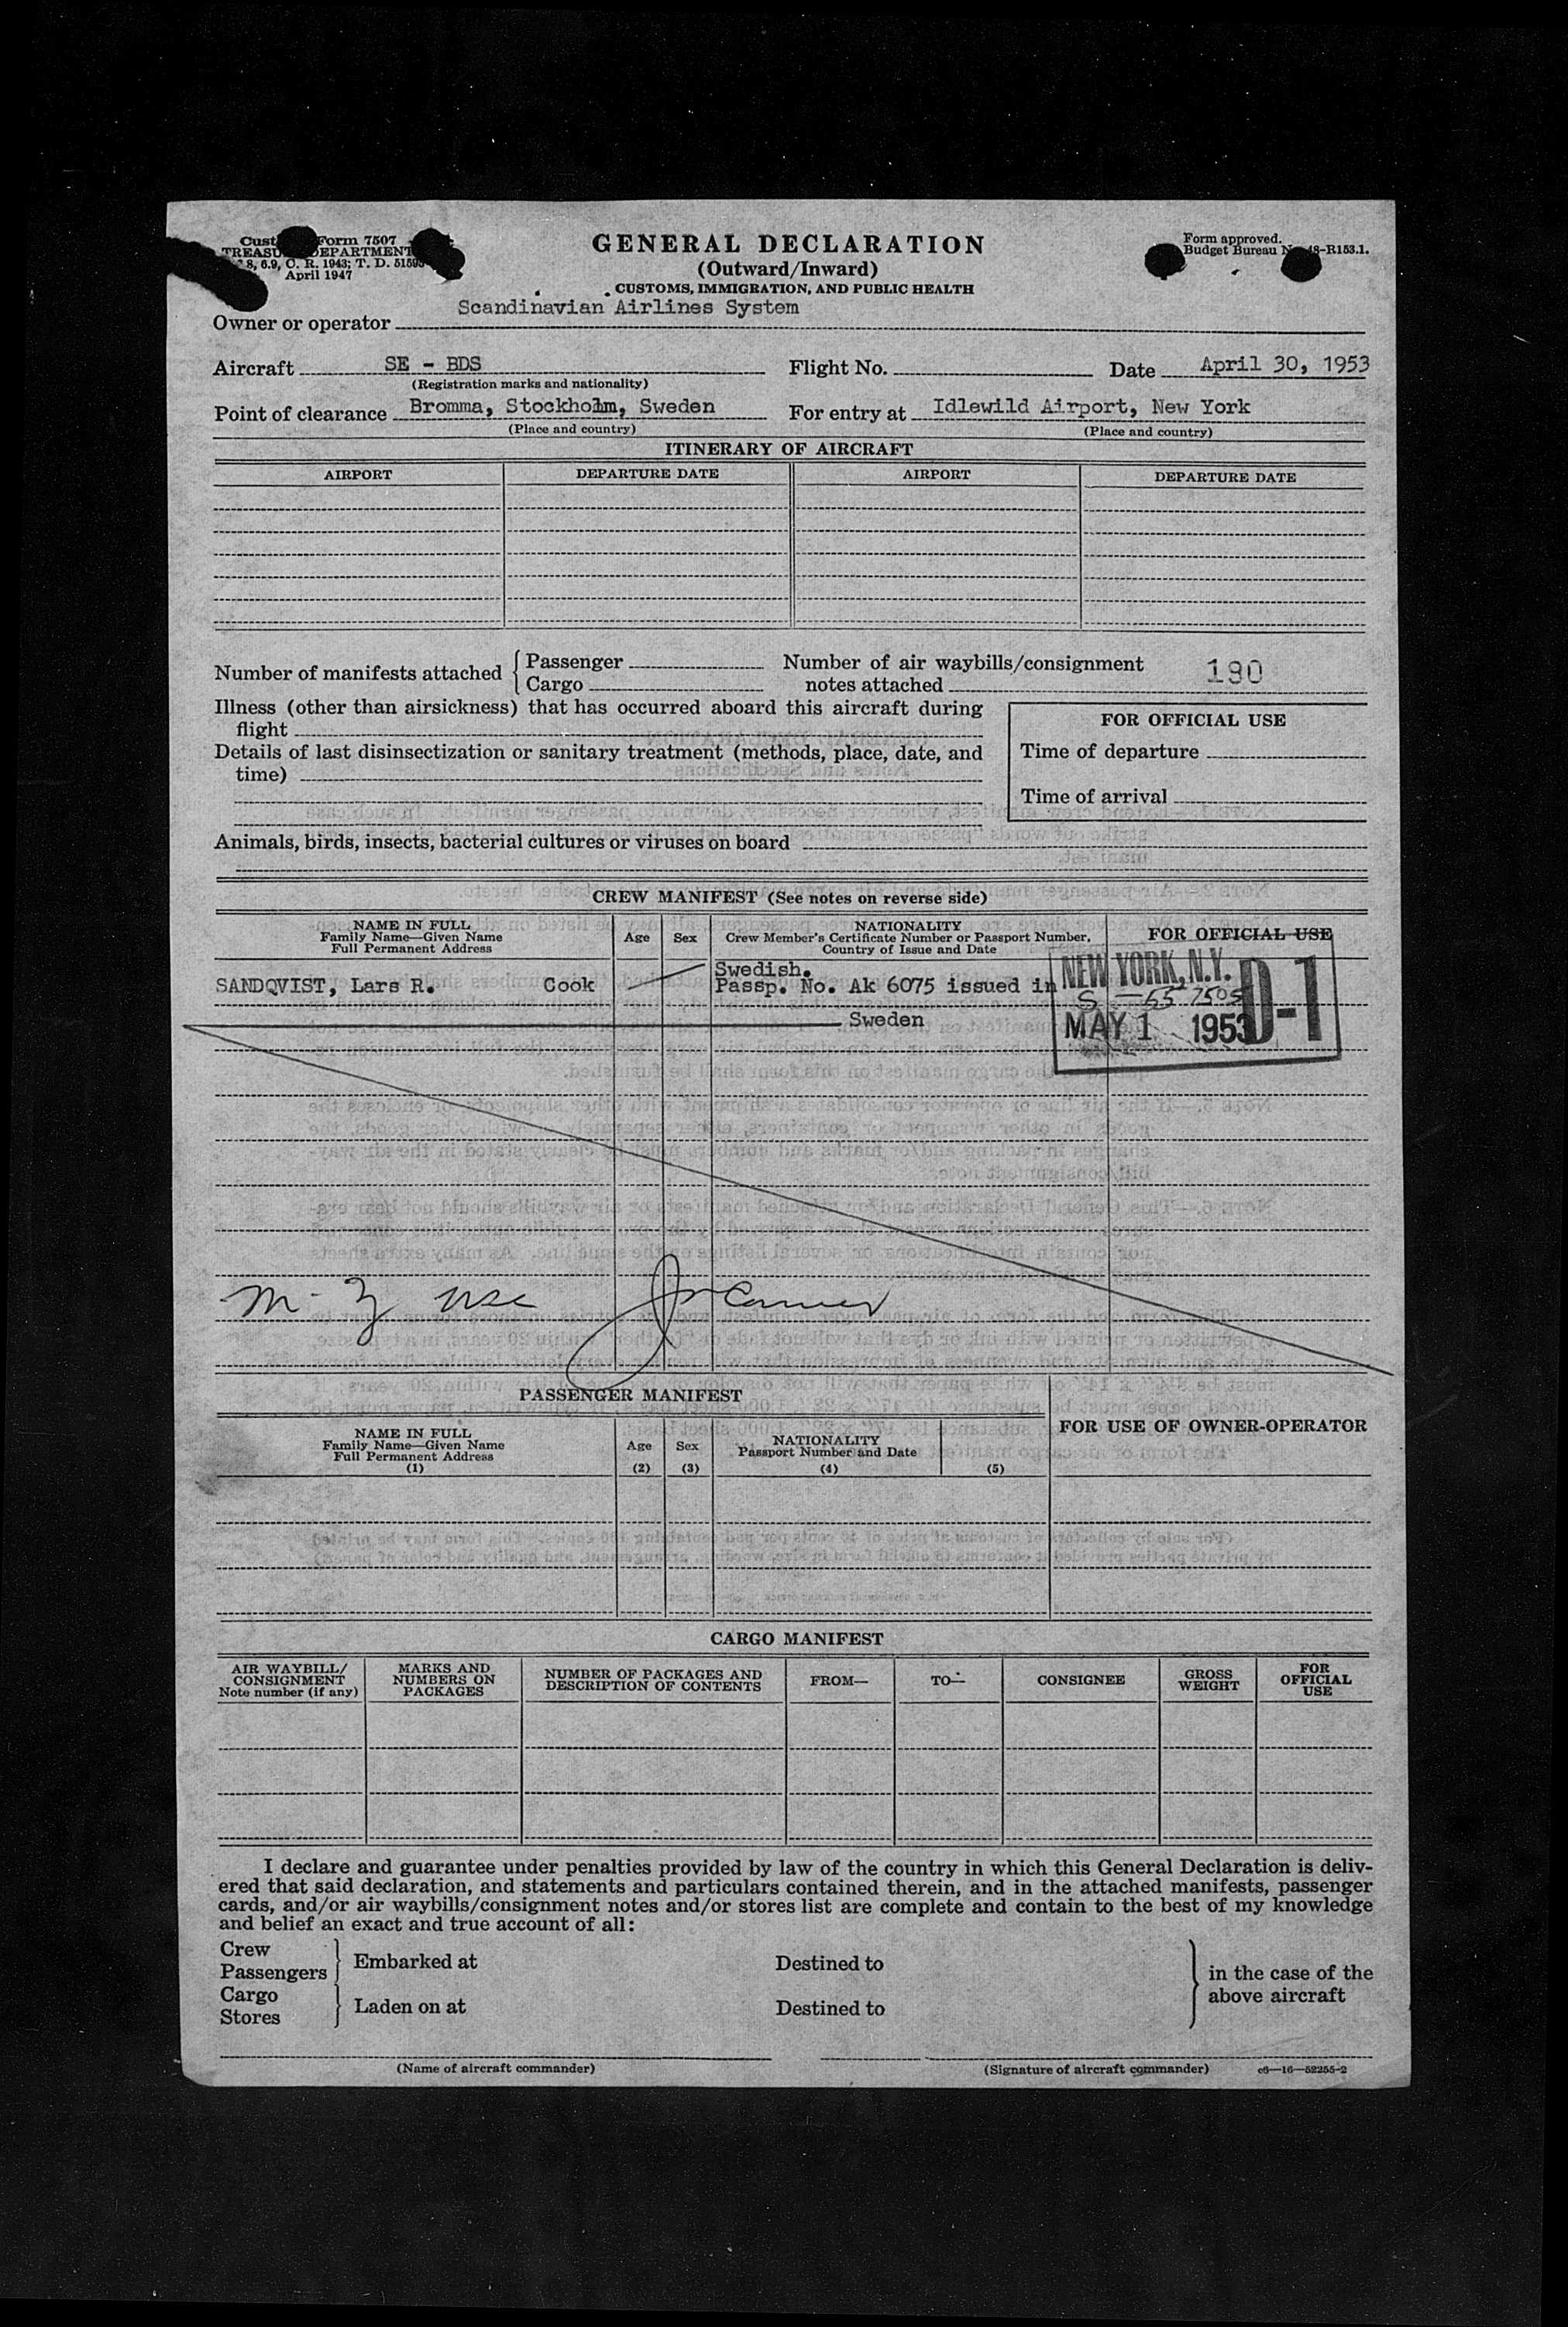 Form 7507
GENERAL DECLARATION
Form approved.
TREASURY DEPARTMENT
(Outward/Inward)
Budget Bureau No. 48-R153.1.
8, 6.9, C. R. 1943; T. D. 51595
April 1947
CUSTOMS, IMMIGRATION, AND PUBLIC HEALTH
Scandinavian Airlines System
Owner or operator
Aircraft SE - BDS Flight No. Date April 30, 1953
(Registration marks and nationality)
Point of clearance Bromma, Stockholm, Sweden For entry at Idlewild Airport, New York
(Place and country) (Place and country)
ITINERARY OF AIRCRAFT
AIRPORT DEPARTURE DATE AIRPORT DEPARTURE DATE
Number of manifests attached { Passenger Number of air waybills/consignment
Cargo notes attached 190
Illness (other than airsickness) that has occurred aboard this aircraft during
flight
FOR OFFICIAL USE
Details of last disinsectization or sanitary treatment (methods, place, date, and
time)
Time of departure
Time of arrival
Animals, birds, insects, bacterial cultures or viruses on board
CREW MANIFEST (See notes on reverse side)
NAME IN FULL
Family Name—Given Name
Full Permanent Address
Age Sex
NATIONALITY
Crew Member's Certificate Number or Passport Number,
Country of Issue and Date
FOR OFFICIAL USE
SANDQVIST, Lars R. Cook
Swedish.
Passp. No. Ak 6075 issued in
Sweden
NEW YORK, N.Y.
S - 55 7505
MAY 1 1953
D-1
PASSENGER MANIFEST
NAME IN FULL
Family Name—Given Name
Full Permanent Address
(1)
Age
(2)
Sex
(3)
NATIONALITY
Passport Number and Date
(4) (5)
FOR USE OF OWNER-OPERATOR
CARGO MANIFEST
AIR WAYBILL/
CONSIGNMENT
Note number (if any)
MARKS AND
NUMBERS ON
PACKAGES
NUMBER OF PACKAGES AND
DESCRIPTION OF CONTENTS
FROM—
TO—
CONSIGNEE
GROSS
WEIGHT
FOR
OFFICIAL
USE
I declare and guarantee under penalties provided by law of the country in which this General Declaration is deliv-
ered that said declaration, and statements and particulars contained therein, and in the attached manifests, passenger
cards, and/or air waybills/consignment notes and/or stores list are complete and contain to the best of my knowledge
and belief an exact and true account of all:
Crew
Passengers } Embarked at Destined to
Cargo
Stores } Laden on at Destined to
} in the case of the
above aircraft
(Name of aircraft commander) (Signature of aircraft commander) c6—16—52255-2